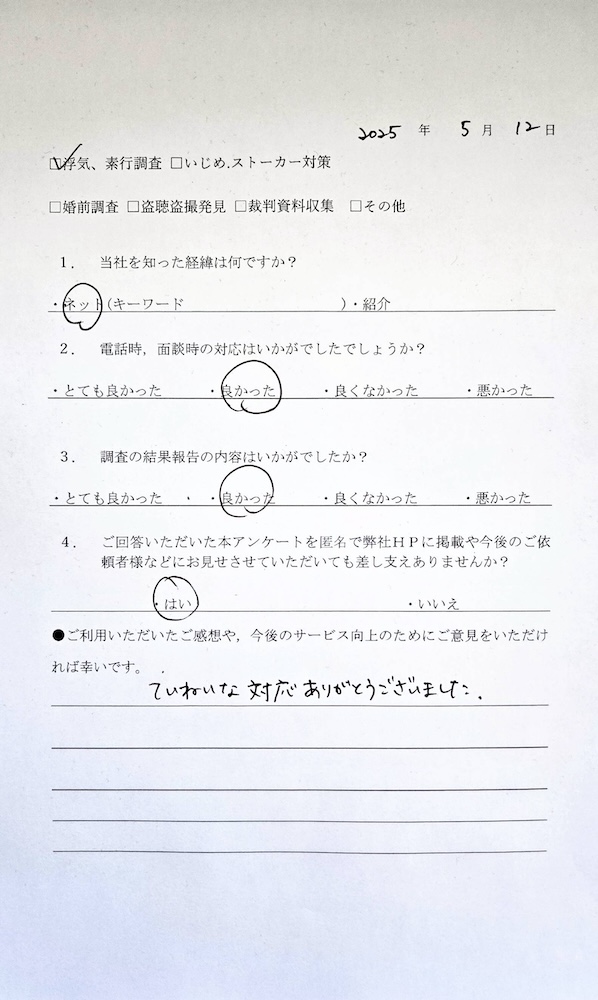 2025 年 5 月 12 日
☑浮気、素行調査 □いじめ.ストーカー対策
□婚前調査 □盗聴盗撮発見 □裁判資料収集 □その他
１． 当社を知った経緯は何ですか？
・ネット(キーワード )・紹介
２． 電話時，面談時の対応はいかがでしたでしょうか？
・とても良かった ・良かった ・良くなかった ・悪かった
３． 調査の結果報告の内容はいかがでしたか？
・とても良かった ・ ・良かった ・良くなかった ・悪かった
４． ご回答いただいた本アンケートを匿名で弊社ＨＰに掲載や今後のご依
頼者様などにお見せさせていただいても差し支えありませんか？
・はい ・いいえ
●ご利用いただいたご感想や，今後のサービス向上のためにご意見をいただけ
れば幸いです。
ていねいな対応ありがとうございました.